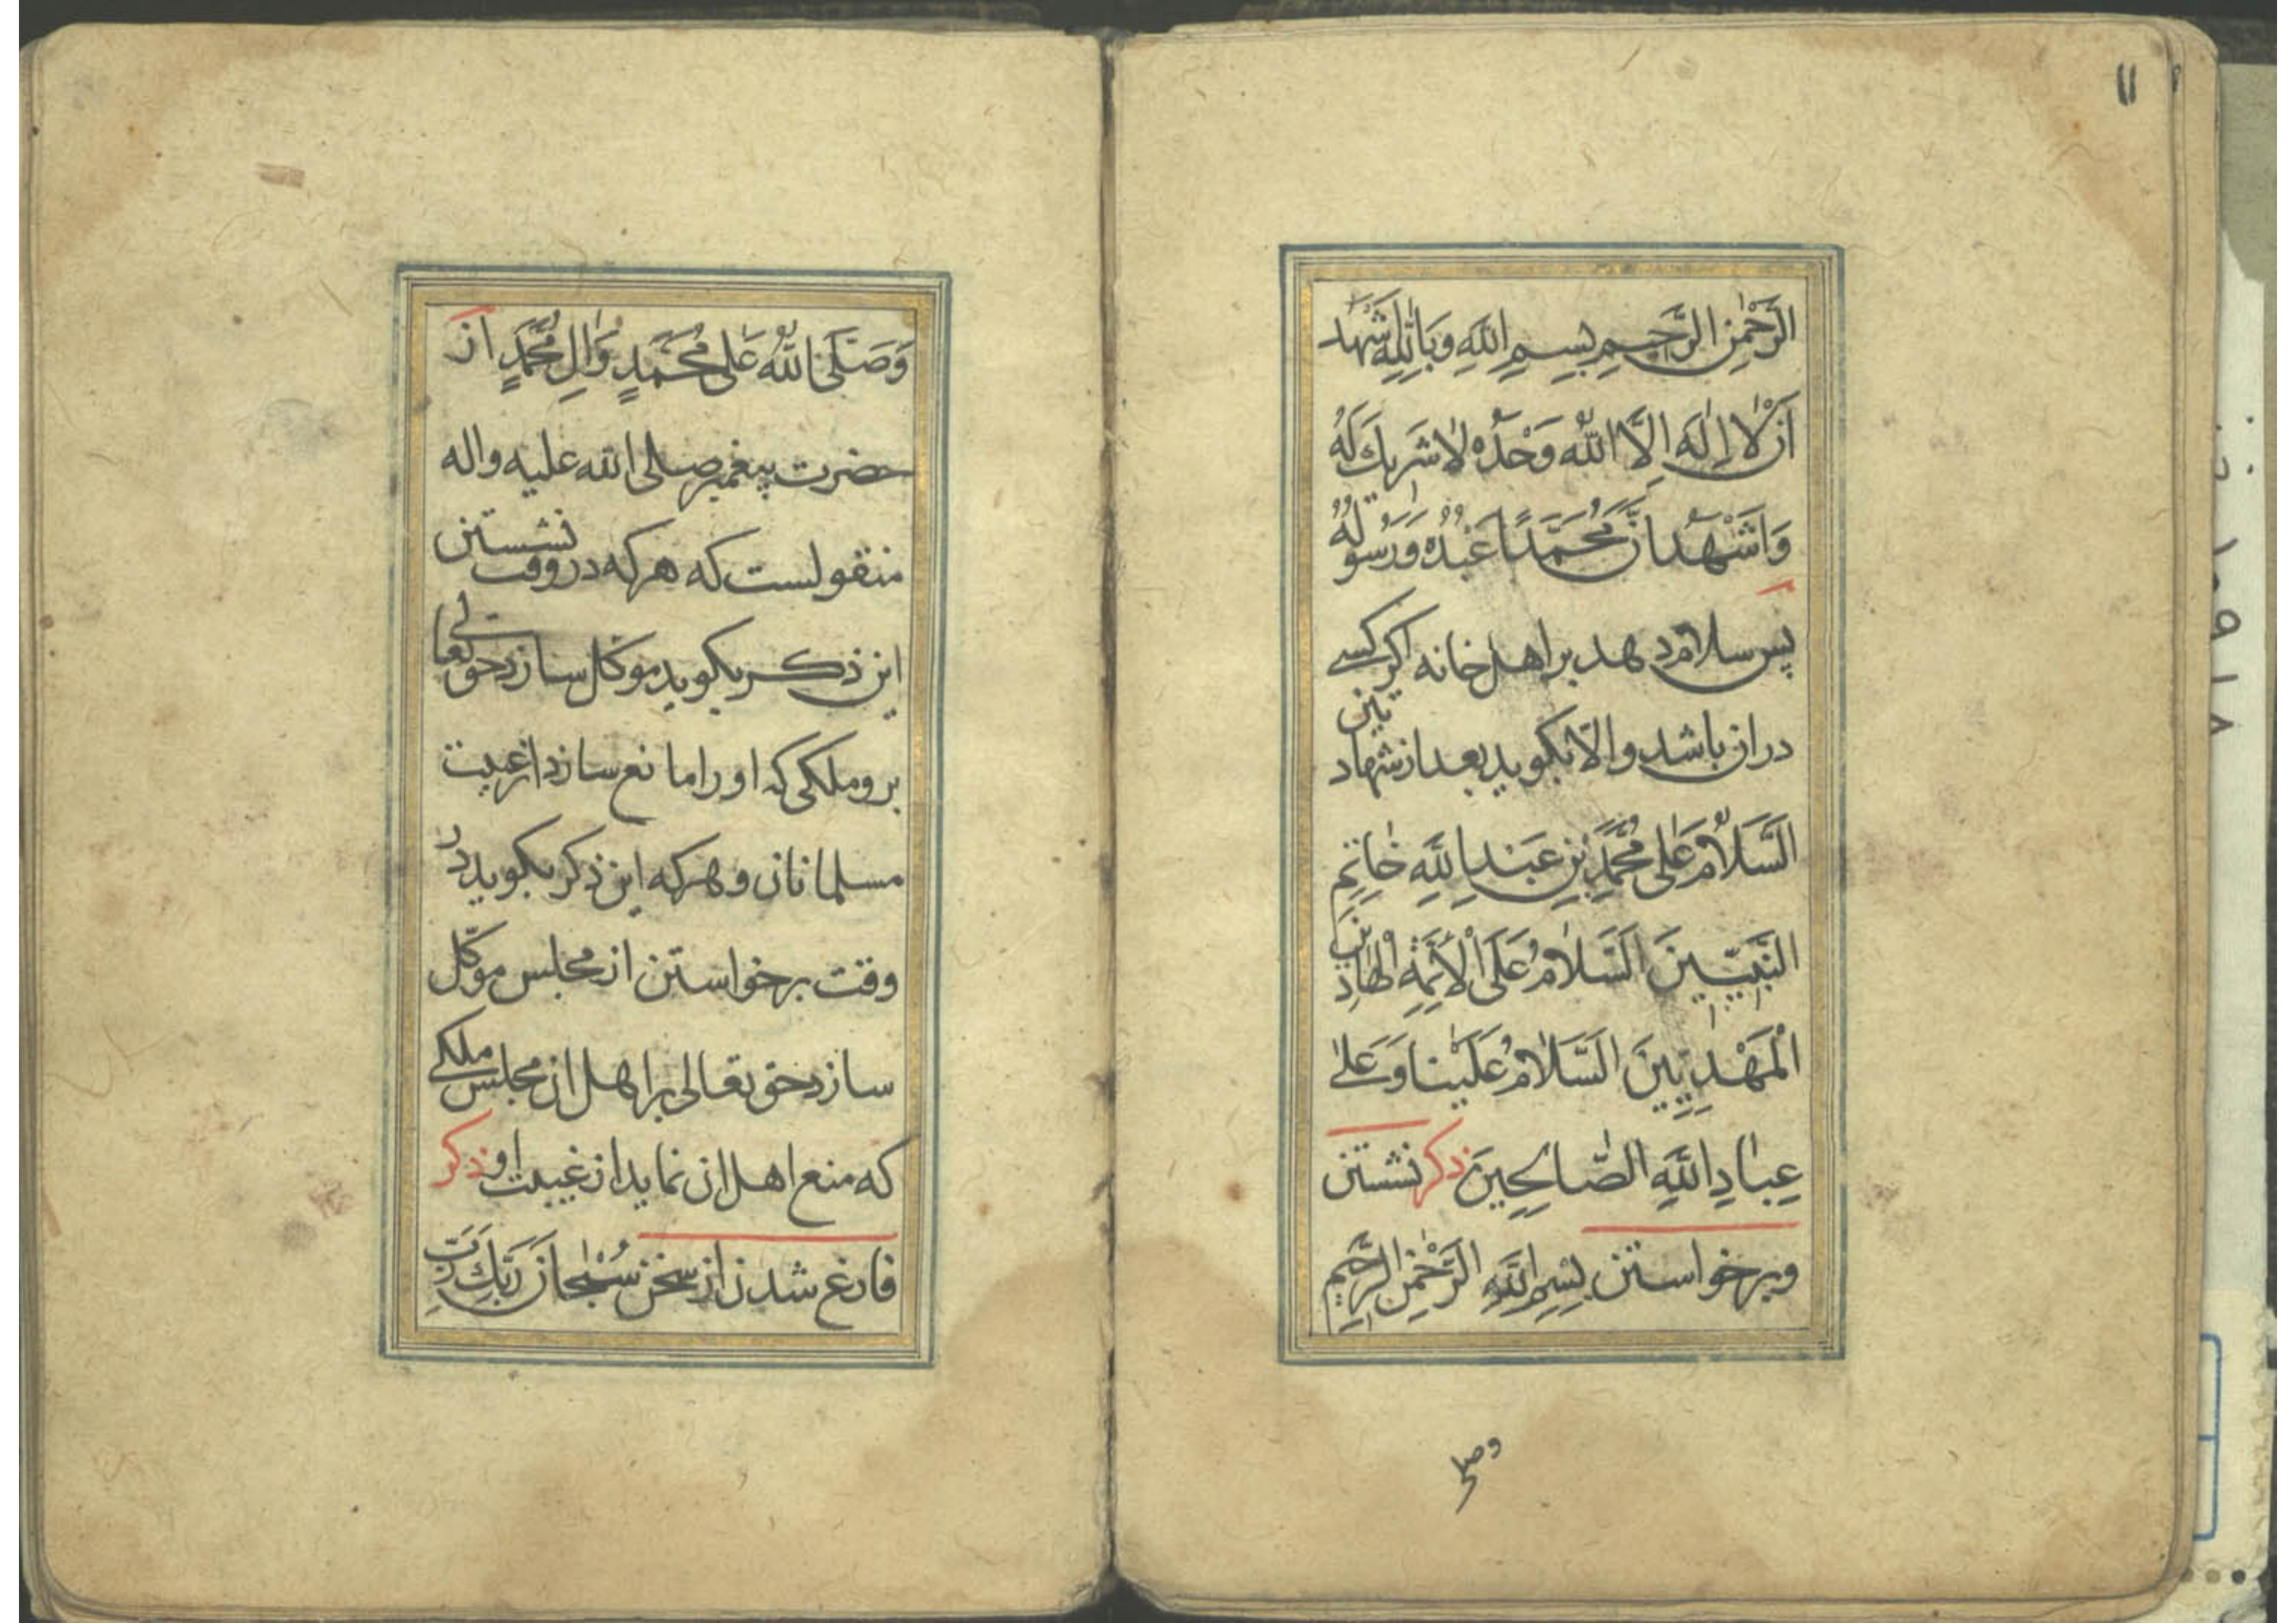 ١١
الرَّحْمٰنِ الرَّحِيمِ بِسْمِ اللّٰهِ وَبِاللّٰهِ اَشْهَدُ
اَنْ لَا اِلٰهَ اِلَّا اللّٰهُ وَحْدَهُ لَا شَرِيكَ لَهُ
وَاَشْهَدُ اَنَّ مُحَمَّدًا عَبْدُهُ وَرَسُولُهُ
پس سلام دهد بر اهل خانه اکر کسی
در ان باشد والّا بکوید بعد از شهادتین
اَلسَّلَامُ عَلٰى مُحَمَّدِ بْنِ عَبْدِ اللّٰهِ خَاتِمِ
النَّبِيِّينَ اَلسَّلَامُ عَلَى الْاَئِمَّةِ الْهَادِينَ
الْمَهْدِيِّينَ اَلسَّلَامُ عَلَيْنَا وَعَلٰى
عِبَادِ اللّٰهِ الصَّالِحِينَ ذکر نشستن
وبرخواستن بِسْمِ اللّٰهِ الرَّحْمٰنِ الرَّحِيمِ
وصلی
وَصَلَّى اللّٰهُ عَلٰى مُحَمَّدٍ وَاٰلِ مُحَمَّدٍ از
حضرت پیغمبر صلی الله علیه واله
منقولست که هرکه در وقت نشستن
این ذکر بکوید موکل سازد حق تعالی
برو ملکی که او را مانع سازد از غیبت
مسلمانان وهرکه این ذکر بکوید در
وقت برخواستن از مجلس موکّل
سازد حق تعالی بر اهل ان مجلس ملکی
که منع اهل ان نماید از غیبت او ذکر
فارغ شدن از سخن سُبْحَانَ رَبِّكَ رَبِّ